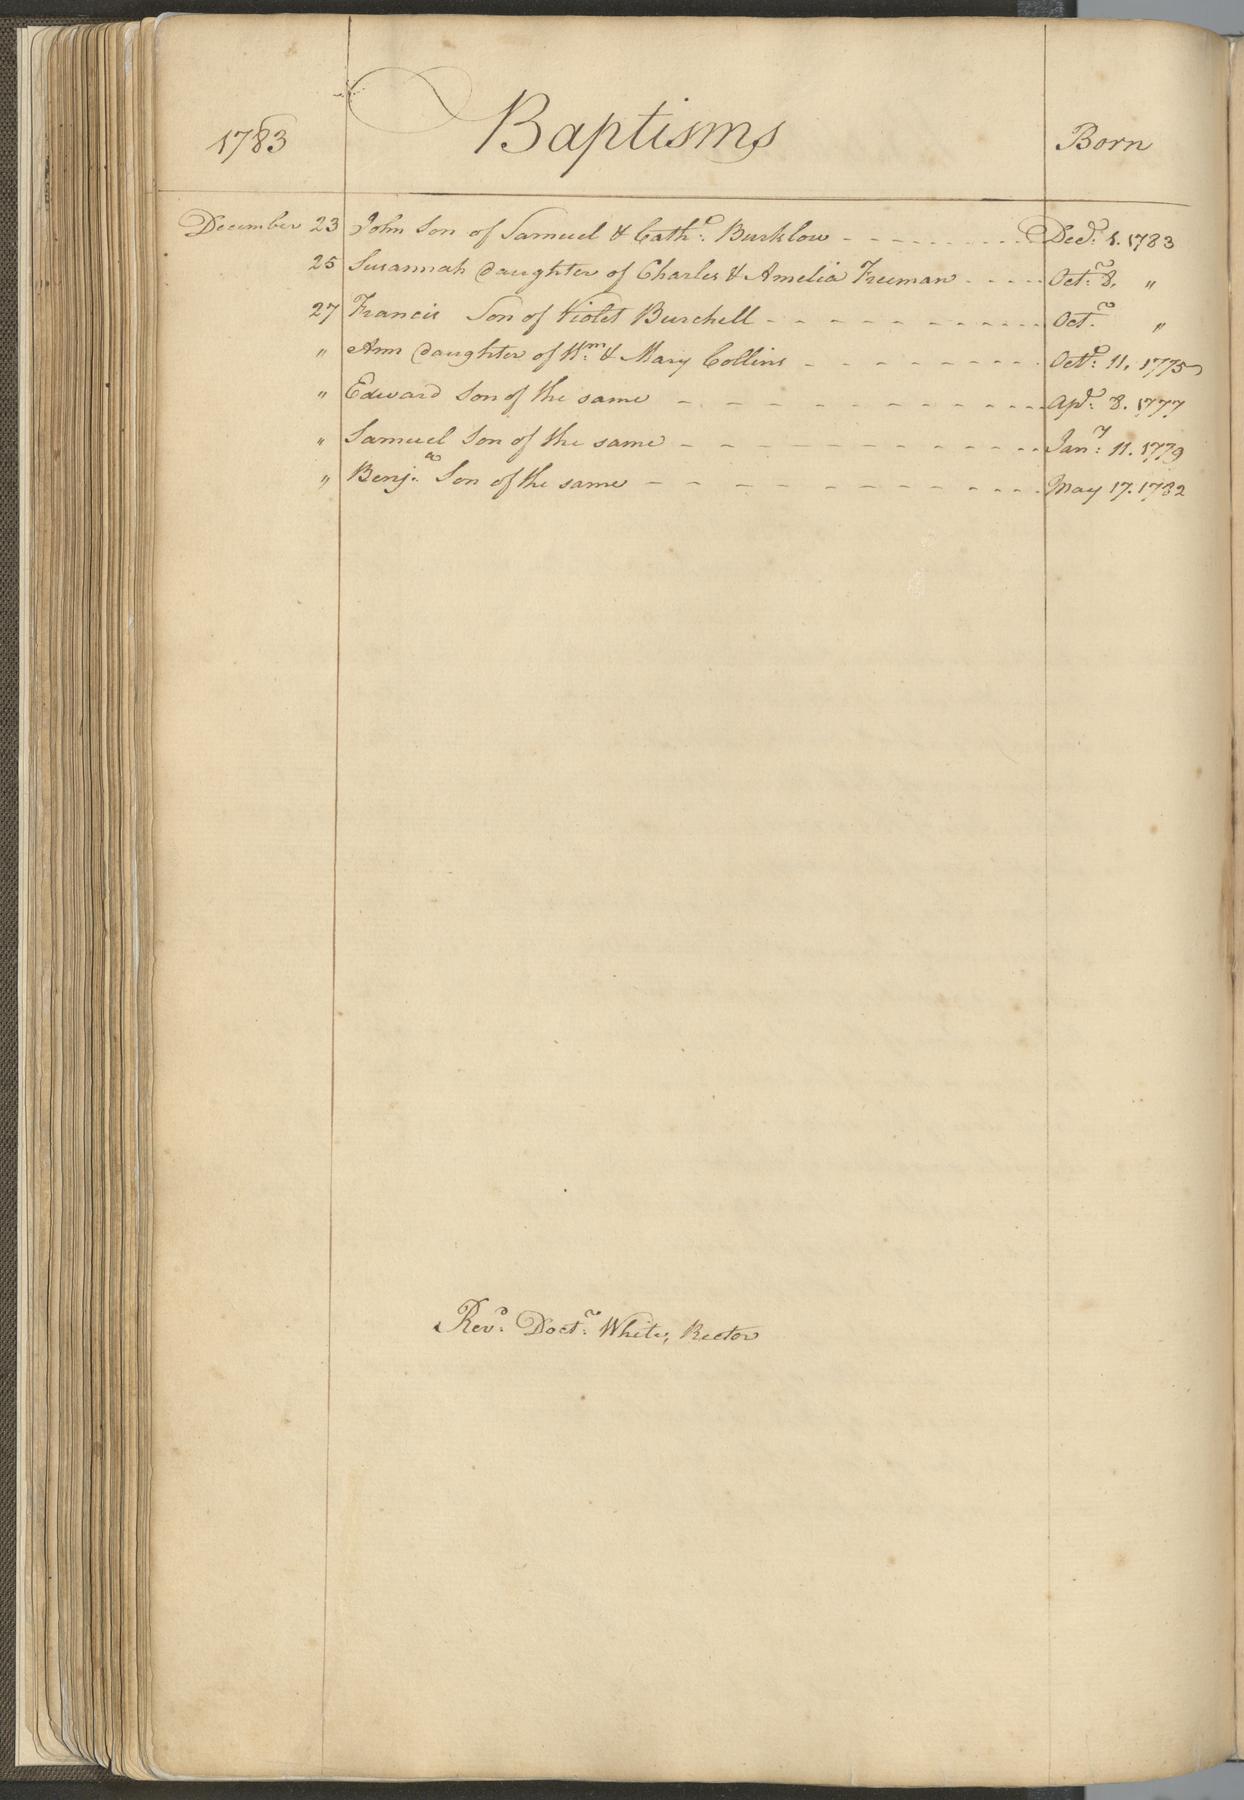 1783 Baptisms Born
December 23 John Son of Samuel & Cath.e Burklow - - - - - - - - - Decr. 1. 1783
25 Susannah daughter of Charles & Amelia Freeman - - - - - Octr. 8. "
27 Francis Son of Violet Burchell - - - - - - - - - - - - Octr. "
" Ann daughter of Wm. & Mary Collins - - - - - - - - Octr. 11. 1775
" Edward Son of the same - - - - - - - - - - - - - - Apr. 8. 1777
" Samuel Son of the same - - - - - - - - - - - - - - Jany. 11. 1779
" Benja. Son of the same - - - - - - - - - - - - - - May 17. 1782
Revd. Doctr. White, Rector